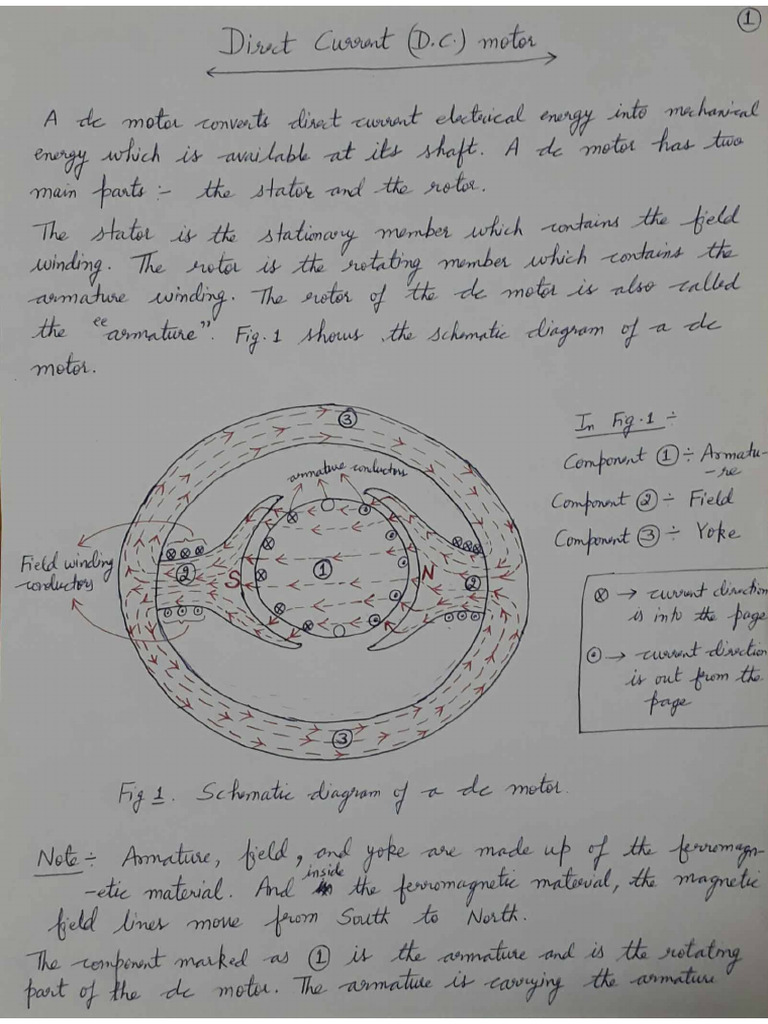 ①
Direct Current (D.C.) motor
A dc motor converts direct current electrical energy into mechanical
energy which is available at its shaft. A dc motor has two
main parts :- the stator and the rotor.
The stator is the stationary member which contains the field
winding. The rotor is the rotating member which contains the
armature winding. The rotor of the dc motor is also called
the "armature". Fig. 1 shows the schematic diagram of a dc
motor.
③
armature conductors
Field winding
conductors
②
S
①
N
②
③
In Fig. 1 ÷
Component ① ÷ Armatu-
-re
Component ② ÷ Field
Component ③ ÷ Yoke
⊗ → current direction
is into the page
⊙ → current direction
is out from the
page
Fig 1. Schematic diagram of a dc motor.
Note ÷ Armature, field, and yoke are made up of the ferromagn-
-etic material. And inside the ferromagnetic material, the magnetic
field lines move from South to North.
The component marked as ① is the armature and is the rotating
part of the dc motor. The armature is carrying the armature